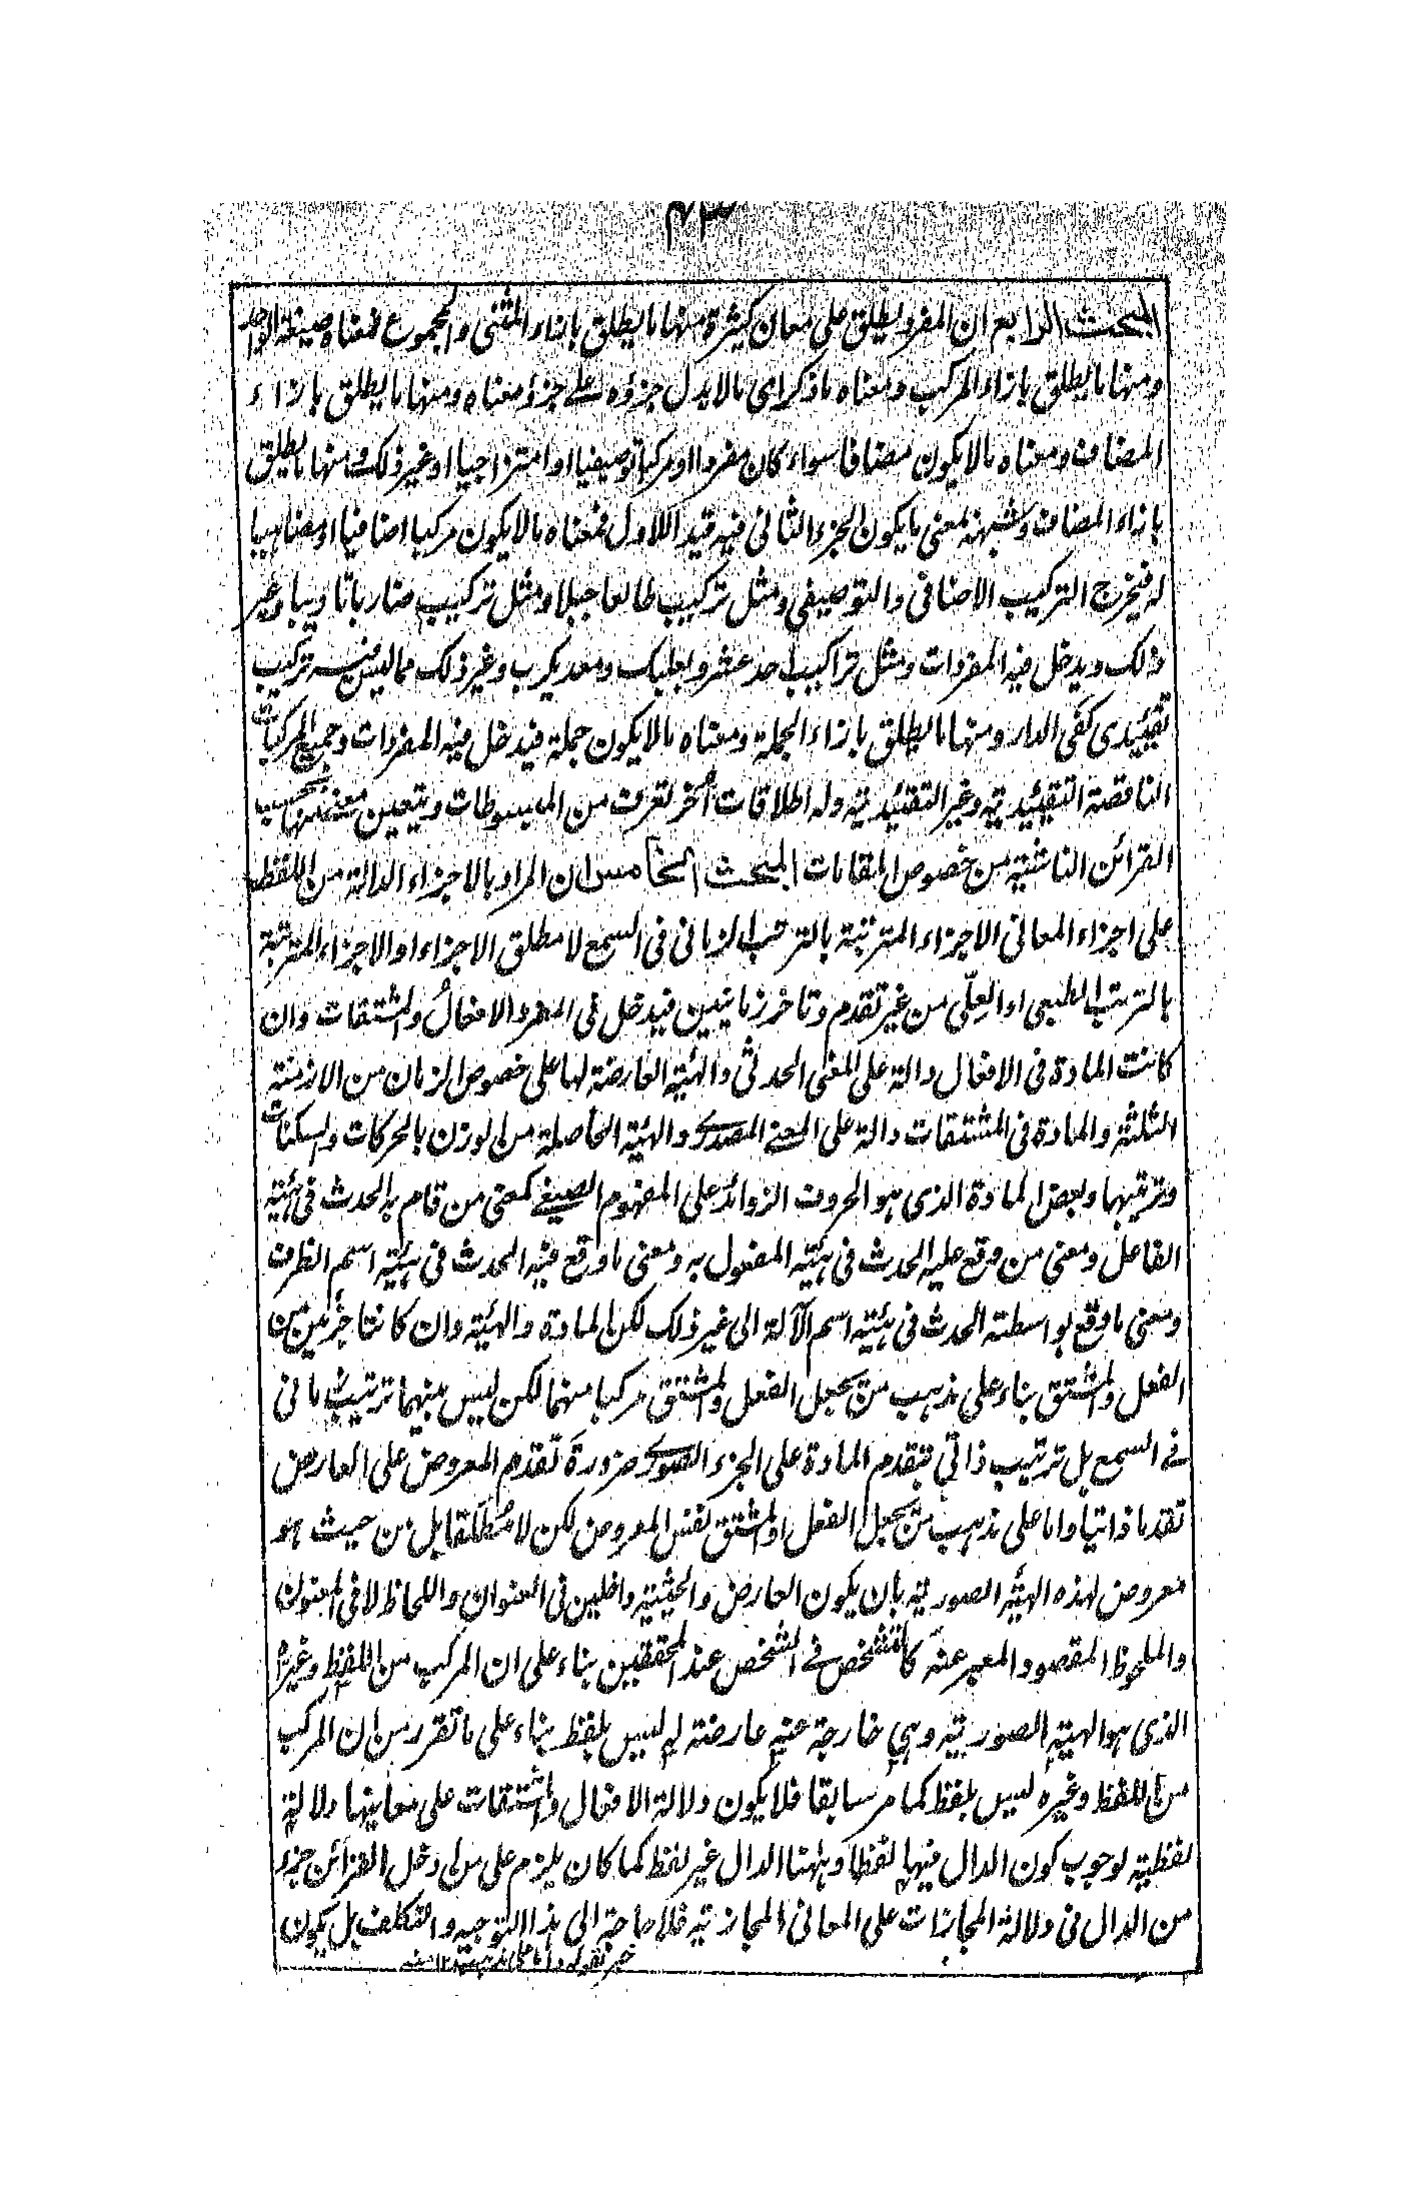 ٤٣
المبحث الرابع ان المفرد يطلق على معان كثيرة منها ما يطلق بازاء المثنى والمجموع فمعناه صيغة الواحد
ومنها ما يطلق بازاء المركب ومعناه ما ذكر اى ما لا يدل جزؤه على جزؤ معناه ومنها ما يطلق بازاء
المضاف ومعناه ما لا يكون مضافا سواء كان مفردا او مركبا توصيفيا او امتزاجيا او غير ذلك ومنها ما يطلق
بازاء المضاف وشبهه بمعنى ما يكون الجزء الثانى فيه قيدا للاول فمعناه ما لا يكون مركبا اضافيا او مضاهيا
له فيخرج التركيب الاضافى والتوصيفى ومثل تركيب طالعا جبلا ومثل تركيب ضاربا وغير
ذلك ويدخل فيه المفردات ومثل تراكيب احد عشر وبعلبك ومعديكرب وغير ذلك مما ليس فيه تركيب
تقييدى كفى الدار ومنها ما يطلق بازاء الجملة ومعناه ما لا يكون جملة فيدخل فيه المفردات وجميع المركبات
الناقصة التقييدية وغير التقييدية وله اطلاقات أخر تعرف من المبسوطات ويتعين معنى منها بحسب
القرائن الناشئية من خصوص المقامات المبحث الخامس ان المراد بالاجزاء الدالة من اللفظ
على اجزاء المعانى الاجزاء المترتبة بالترتب الزمانى فى السمع لا مطلق الاجزاء او الاجزاء المترتبة
بالترتب الطبعى او العلّى من غير تقدم وتاخر زمانيين فيدخل فى المفرد الافعال والمشتقات وان
كانت المادة فى الافعال دالة على المعنى الحدثى والهيئة العارضة لها على خصوص الزمان من الازمنة
الثلثة والمادة فى المشتقات دالة على المعنى المصدرى والهيئة الحاصلة من الوزن بالحركات والسكنات
وترتيبها وبعض المادة الذى هو الحروف الزوائد على المفهوم الصيغى كمعنى من قام به الحدث فى هيئة
الفاعل ومعنى من وقع عليه الحدث فى هيئة المفعول به ومعنى ما وقع فيه الحدث فى هيئة اسم الظرف
ومعنى ما وقع بواسطته الحدث فى هيئة اسم الآلة الى غير ذلك لكن المادة والهيئة وان كانتا جزئين من
الفعل والمشتق بناء على مذهب من يجعل الفعل والمشتق مركبا منهما لكن ليس بينهما ترتيب زمانى
فى السمع بل ترتيب ذاتى بتقدم المادة على الجزء الصورى ضرورة تقدم المعروض على العارض
تقدما ذاتيا واما على مذهب من يجعل الفعل او المشتق نفس المعروض لكن لا مطلقا بل من حيث هو
معروض لهذه الهيئة الصورية بان يكون العارض والحيثية داخلين فى العنوان واللحاظ لا فى المعنون
والملحوظ المقصود المعبر عنه كالتشخص فى الشخص عند المحققين بناء على ان المركب من اللفظ وغيره
الذى هو الهيئة الصورية وهى خارجة عنه عارضة له ليس بلفظ بناء على ما تقرر من ان المركب
من اللفظ وغيره ليس بلفظ كما مر سابقا فلا يكون دلالة الافعال والمشتقات على معانيها دلالة
لفظية لوجوب كون الدال فيها لفظا وههنا الدال غير لفظ كما كان يلزم على من ادخل القرائن جزء
من الدال فى دلالة المجازات على المعانى المجازية فلا حاجة الى هذا التوجيه والتكلف بل يكون
خبر لقوله واما على مذهب ١٢ منه